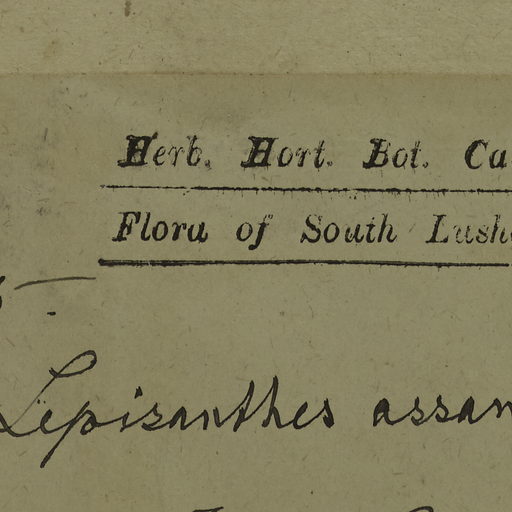 Herb. Hort. Bot. Ca
Flora of South Lush
Lepisanthes assam